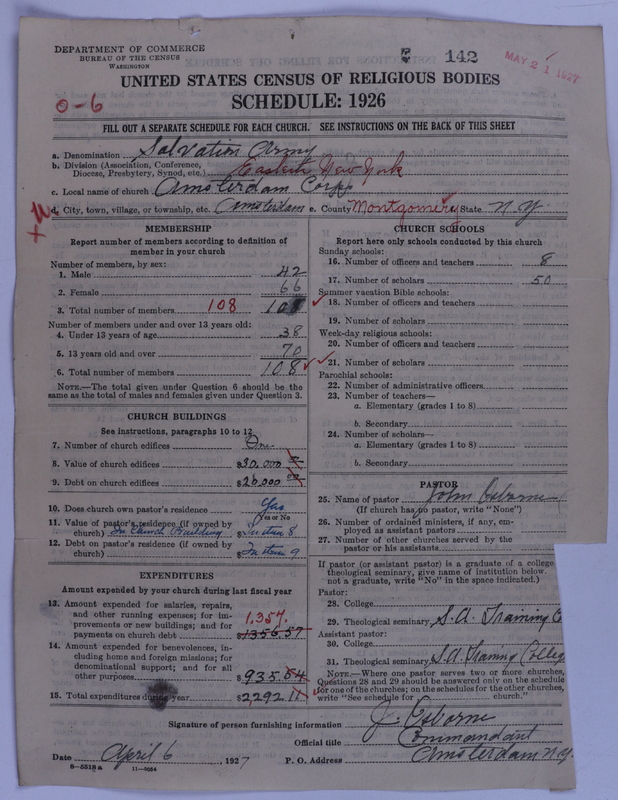 DEPARTMENT OF COMMERCE
BUREAU OF THE CENSUS
WASHINGTON
142
MAY 21 1927
UNITED STATES CENSUS OF RELIGIOUS BODIES
SCHEDULE: 1926
0-6
FILL OUT A SEPARATE SCHEDULE FOR EACH CHURCH. SEE INSTRUCTIONS ON THE BACK OF THIS SHEET
a. Denomination Salvation Army
b. Division (Association, Conference,
Diocese, Presbytery, Synod, etc.) Eastern New York
c. Local name of church Amsterdam Corps
d. City, town, village, or township, etc. Amsterdam e. County Montgomery State N.Y
MEMBERSHIP
Report number of members according to definition of
member in your church
Number of members, by sex:
1. Male 42
2. Female 66
3. Total number of members 108 108
Number of members under and over 13 years old:
4. Under 13 years of age 38
5. 13 years old and over 70
6. Total number of members 108
NOTE.—The total given under Question 6 should be
same as the total of males and females given under Question 3.
CHURCH BUILDINGS
See instructions, paragraphs 10 to 12
7. Number of church edifices One
8. Value of church edifices $30,000 00
9. Debt on church edifices $20,000 00
10. Does church own pastor's residence Yes
Yes or No
11. Value of pastor's residence (if owned by
church) In Church Building $ In item 8
12. Debt on pastor's residence (if owned by
church) $ In item 9
EXPENDITURES
Amount expended by church during last fiscal year
13. Amount expended for salaries, repairs,
and other running expenses; for im-
provements or new buildings; and for
payments on church debt 1,357. $1356.57
14. Amount expended for benevolences,
including home and foreign missions; for
denominational support; and for all
other purposes $935.54
15. Total expenditures during year $2292 11
CHURCH SCHOOLS
Report here only schools conducted by this church
Sunday schools:
16. Number of officers and teachers 8
17. Number of scholars 50
Summer vacation Bible schools:
18. Number of officers and teachers
19. Number of scholars
Week-day religious schools:
20. Number of officers and teachers
21. Number of scholars
Parochial schools:
22. Number of administrative officers
23. Number of teachers—
a. Elementary (grades 1 to 8)
b. Secondary
24. Number of scholars—
a. Elementary (grades 1 to 8)
b. Secondary
PASTOR
25. Name of pastor John Osborne
(If church has no pastor, write "None")
26. Number of ordained ministers, if any, em-
ployed as assistant pastors
27. Number of other churches served by the
pastor or his assistants
If pastor (or assistant pastor) is a graduate of a college
theological seminary, give name of institution below.
not a graduate, write "No" in the space indicated.)
Pastor:
28. College
29. Theological seminary S.A. Training C
Assistant pastor:
30. College
31. Theological seminary S.A Training College
NOTE.—Where one pastor serves two or more churches,
Questions 28 and 29 should be answered only on the schedule
for one of the churches; on the schedules for the other churches,
write "See schedule for church."
Signature of person furnishing information J. Osborne
Official title Commandant
Date April 6, 1927 P. O. Address Amsterdam N.Y.
8-5518a 11-9054